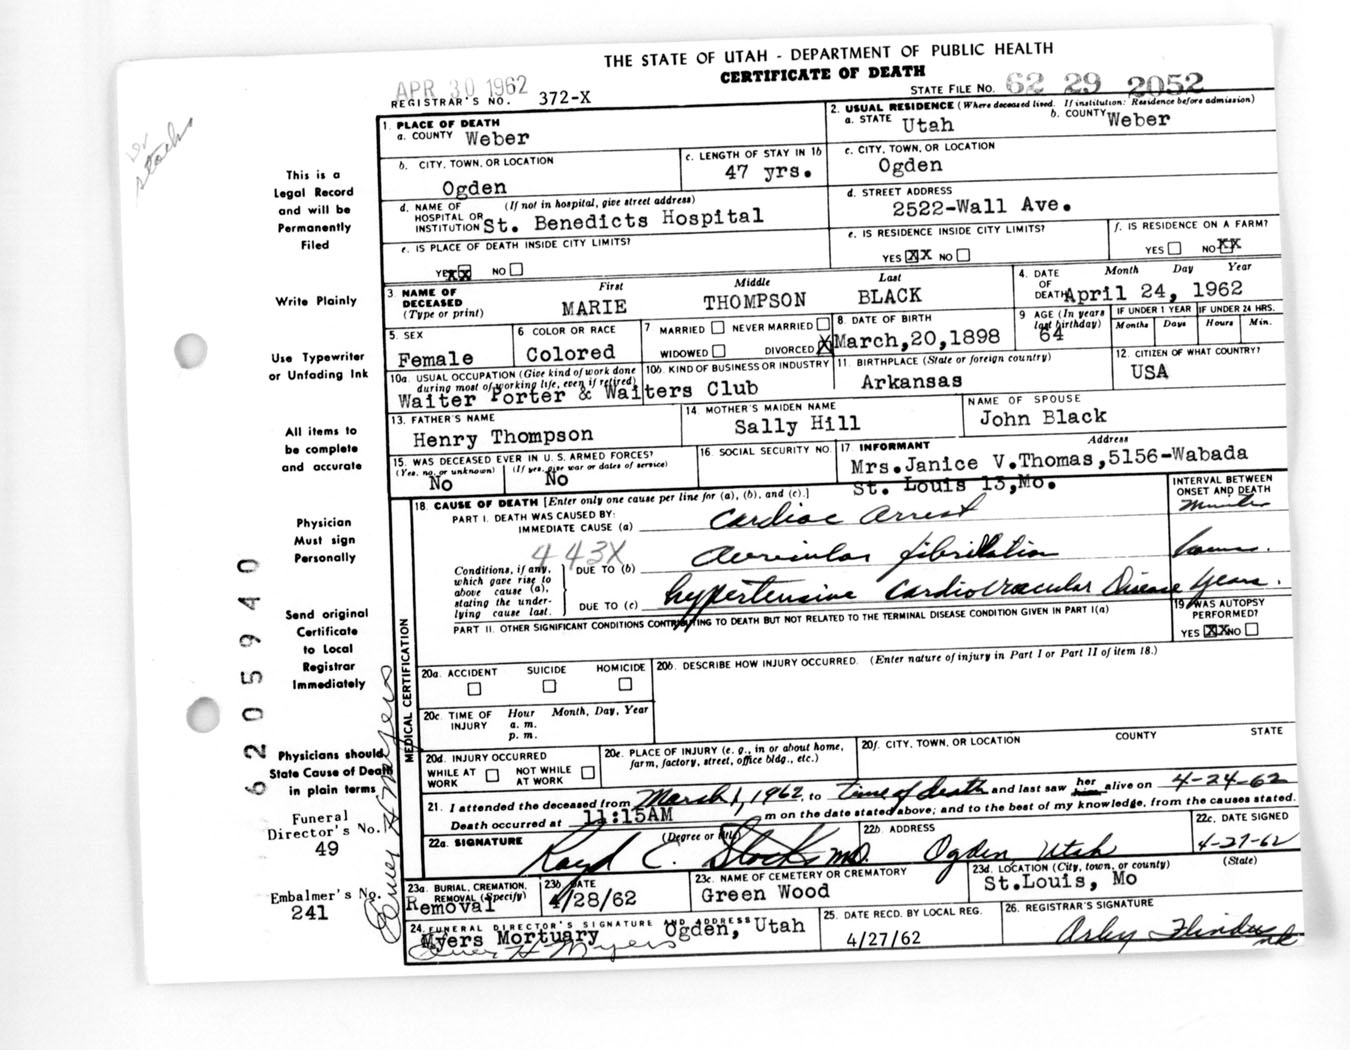 THE STATE OF UTAH - DEPARTMENT OF PUBLIC HEALTH
CERTIFICATE OF DEATH
APR 30 1962
REGISTRAR'S NO. 372-X
STATE FILE NO. 62 29 2052
1. PLACE OF DEATH
a. COUNTY Weber
2. USUAL RESIDENCE (Where deceased lived. If institution: Residence before admission)
a. STATE Utah b. COUNTY Weber
b. CITY, TOWN, OR LOCATION
Ogden
c. LENGTH OF STAY IN 1b
47 yrs.
c. CITY, TOWN, OR LOCATION
Ogden
d. NAME OF (If not in hospital, give street address)
HOSPITAL OR
INSTITUTION St. Benedicts Hospital
d. STREET ADDRESS
2522-Wall Ave.
e. IS PLACE OF DEATH INSIDE CITY LIMITS?
YES XX NO
e. IS RESIDENCE INSIDE CITY LIMITS?
YES XX NO
f. IS RESIDENCE ON A FARM?
YES NO XX
3. NAME OF
DECEASED
(Type or print)
First Middle Last
MARIE THOMPSON BLACK
4. DATE OF DEATH Month Day Year
April 24, 1962
5. SEX
Female
6. COLOR OR RACE
Colored
7 MARRIED NEVER MARRIED
WIDOWED DIVORCED X
8. DATE OF BIRTH
March,20,1898
9 AGE (In years
last birthday)
64
IF UNDER 1 YEAR
Months Days
IF UNDER 24 HRS.
Hours Min.
10a. USUAL OCCUPATION (Give kind of work done
during most of working life, even if retired)
10b. KIND OF BUSINESS OR INDUSTRY
Waiter Porter & Waiters Club
11. BIRTHPLACE (State or foreign country)
Arkansas
12. CITIZEN OF WHAT COUNTRY?
USA
13. FATHER'S NAME
Henry Thompson
14. MOTHER'S MAIDEN NAME
Sally Hill
NAME OF SPOUSE
John Black
15. WAS DECEASED EVER IN U.S. ARMED FORCES?
(Yes, no, or unknown) (If yes, give war or dates of service)
No No
16. SOCIAL SECURITY NO.
17 INFORMANT Address
Mrs.Janice V.Thomas,5156-Wabada
St. Louis 13,Mo.
18. CAUSE OF DEATH [Enter only one cause per line for (a), (b), and (c).]
INTERVAL BETWEEN
ONSET AND DEATH
PART I. DEATH WAS CAUSED BY:
IMMEDIATE CAUSE (a) Cardiac Arrest
443X
Conditions, if any,
which gave rise to
above cause (a),
stating the under-
lying cause last.
DUE TO (b) Auricular fibrillation
DUE TO (c) hypertensive Cardiovascular Disease years.
PART II. OTHER SIGNIFICANT CONDITIONS CONTRIBUTING TO DEATH BUT NOT RELATED TO THE TERMINAL DISEASE CONDITION GIVEN IN PART I(a)
19. WAS AUTOPSY
PERFORMED?
YES XX NO
MEDICAL CERTIFICATION
20a. ACCIDENT SUICIDE HOMICIDE
20b. DESCRIBE HOW INJURY OCCURRED. (Enter nature of injury in Part I or Part II of item 18.)
20c. TIME OF
INJURY
Hour Month, Day, Year
a. m.
p. m.
20d. INJURY OCCURRED
WHILE AT
WORK
NOT WHILE
AT WORK
20e. PLACE OF INJURY (e. g., in or about home,
farm, factory, street, office bldg., etc.)
20f. CITY, TOWN, OR LOCATION COUNTY STATE
21. I attended the deceased from March 1, 1962, to time of death and last saw her him alive on 4-24-62
Death occurred at 11:15AM m on the date stated above; and to the best of my knowledge, from the causes stated.
22a. SIGNATURE (Degree or title)
C. Stocks MD.
22b. ADDRESS
Ogden, Utah
22c. DATE SIGNED
4-27-62
23a. BURIAL, CREMATION,
REMOVAL (Specify)
Removal
23b. DATE
4/28/62
23c. NAME OF CEMETERY OR CREMATORY
Green Wood
23d. LOCATION (City, town, or county) (State)
St.Louis, Mo
24. FUNERAL DIRECTOR'S SIGNATURE AND ADDRESS
Myers Mortuary Ogden, Utah
Elmer H Myers
25. DATE RECD. BY LOCAL REG.
4/27/62
26. REGISTRAR'S SIGNATURE
This is a
Legal Record
and will be
Permanently
Filed
Write Plainly
Use Typewriter
or Unfading Ink
All items to
be complete
and accurate
Physician
Must sign
Personally
Send original
Certificate
to Local
Registrar
Immediately
Physicians should
State Cause of Death
in plain terms
Funeral
Director's No.
49
Embalmer's No.
241
62 059 40
Elmer H Myers